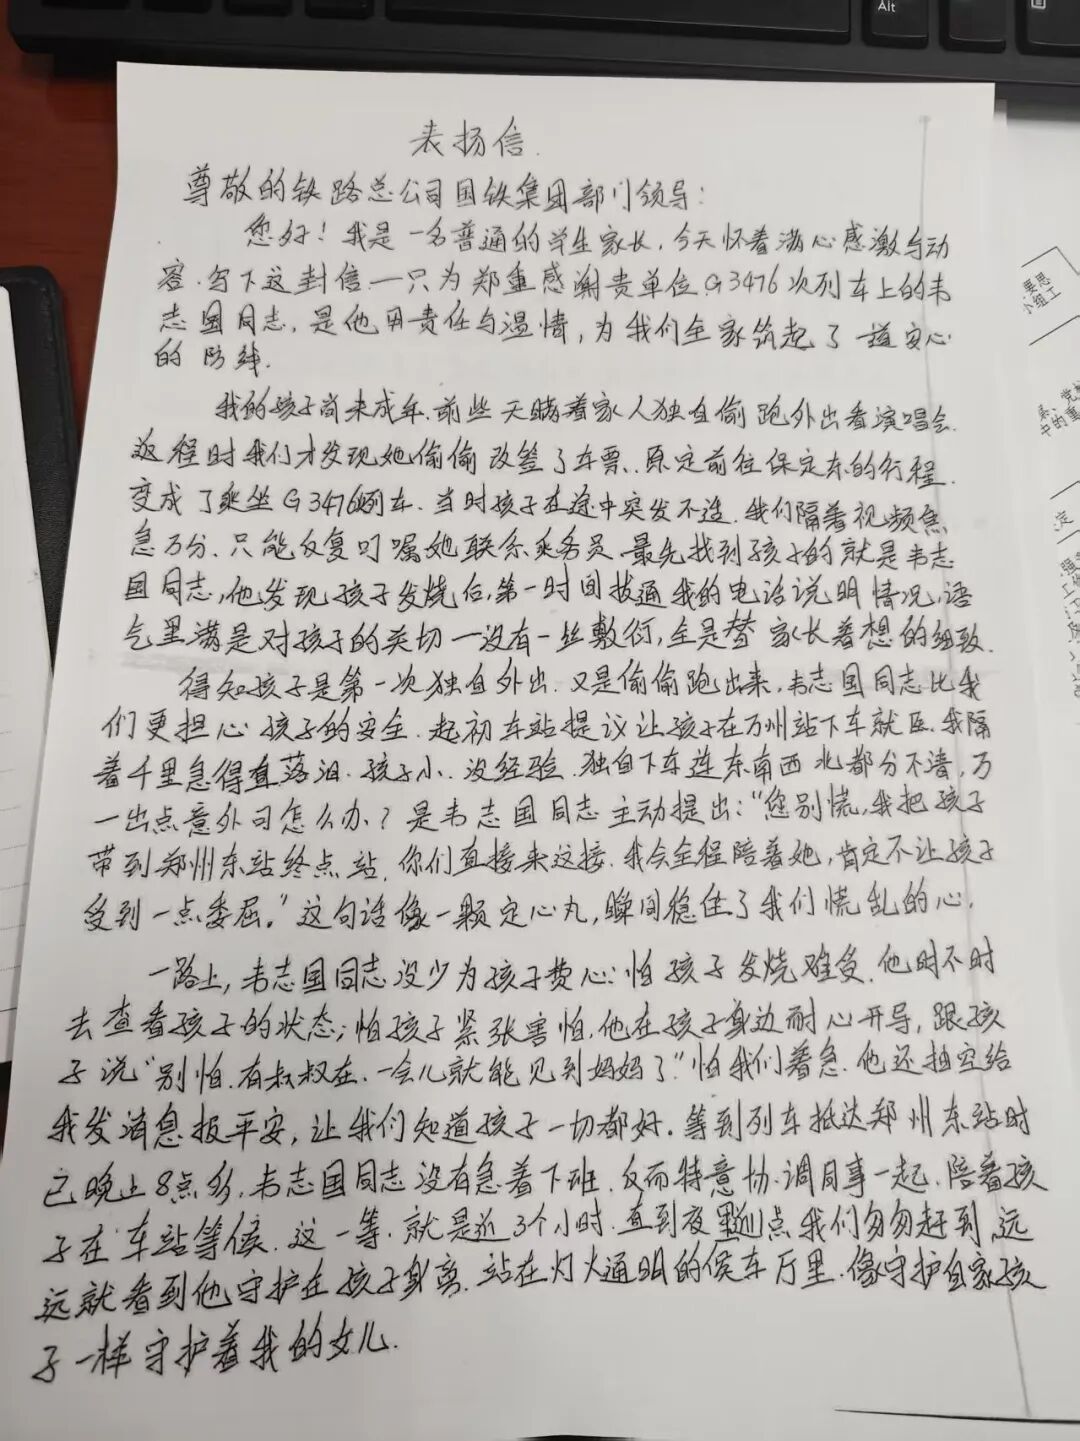 Alt
表扬信.
尊敬的铁路总公司国铁集团部门领导：
您好！我是一名普通的学生家长，今天怀着满心感激与动
容.写下这封信一只为郑重感谢贵单位.G3476次列车上的韦
志国同志，是他用责任与温情，为我们全家筑起了一道安心
的防线.
我的孩子尚未成年.前些天瞒着家人独自偷跑外出看演唱会.
返程时我们才发现她偷偷改签了车票.原定前往保定东的行程.
变成了乘坐G3476列车.当时孩子在途中突发不适.我们隔着视频焦
急万分.只能反复叮嘱她联系乘务员.最先找到孩子的就是韦志
国同志，他发现孩子发烧后，第一时间拨通我的电话说明情况，语
气里满是对孩子的关切一没有一丝敷衍，全是替家长着想的细致.
得知孩子是第一次独自外出.又是偷偷跑出来，韦志国同志比我
们更担心孩子的安全.起初车站提议让孩子在万州站下车就医.我隔
着千里急得直落泪.孩子小.没经验.独自下车连东南西北都分不清，万
一出点意外可怎么办？是韦志国同志主动提出：“您别慌，我把孩子
带到郑州东站终点站.你们直接来这接.我会全程陪着她，肯定不让孩子
受到一点委屈。”这句话像一颗定心丸，瞬间稳住了我们慌乱的心.
一路上，韦志国同志没少为孩子费心：怕孩子发烧难受.他时不时
去查看孩子的状态；怕孩子紧张害怕.他在孩子身边耐心开导，跟孩
子说“别怕.有叔叔在.一会儿就能见到妈妈了”怕我们着急.他还抽空给
我发消息报平安，让我们知道孩子一切都好.等到列车抵达郑州东站时
已晚上8点多，韦志国同志没有急着下班.反而特意协调同事一起.陪着孩
子在车站等候.这一等.就是近3个小时.直到夜里近11点我们匆匆赶到.远
远就看到他守护在孩子身旁.站在灯火通明的候车厅里.像守护自家孩
子一样守护着我的女儿.